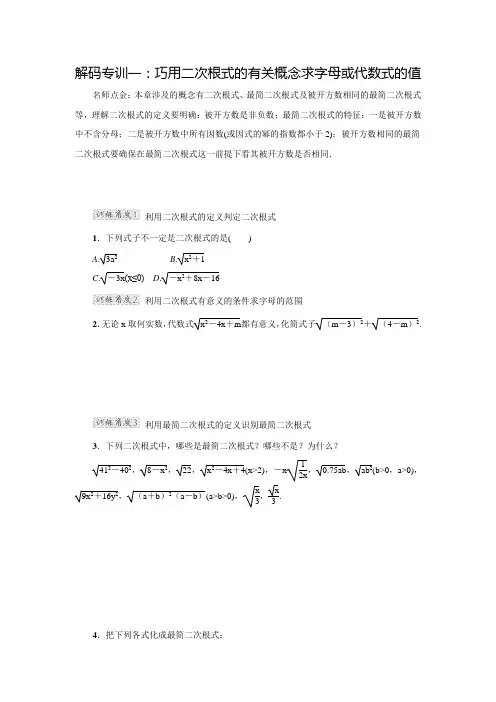 解码专训一：巧用二次根式的有关概念求字母或代数式的值
名师点金：本章涉及的概念有二次根式、最简二次根式及被开方数相同的最简二次根式
等，理解二次根式的定义要明确：被开方数是非负数；最简二次根式的特征：一是被开方数
中不含分母；二是被开方数中所有因数(或因式的幂的指数都小于2)；被开方数相同的最简
二次根式要确保在最简二次根式这一前提下看其被开方数是否相同．
训练角度1 利用二次根式的定义判定二次根式
1．下列式子不一定是二次根式的是(　　)
A.√(3a²)　B.√(x²＋1)
C.√(－3x)(x≤0)　D.√(－x²＋8x－16)
训练角度2 利用二次根式有意义的条件求字母的范围
2.无论x取何实数，代数式√(x²－4x＋m)都有意义，化简式子√((m－3)²)＋√((4－m)²).
训练角度3 利用最简二次根式的定义识别最简二次根式
3．下列二次根式中，哪些是最简二次根式？哪些不是？为什么？
√(41²－40²)，√(8－x²)，√22，√(x²－4x＋4)(x>2)，－x√(1/2x)，√(0.75ab)，√(ab²)(b>0，a>0)，
√(9x²＋16y²)，√((a＋b)²(a－b))(a>b>0)，√(x/3)，√x/3.
4．把下列各式化成最简二次根式：